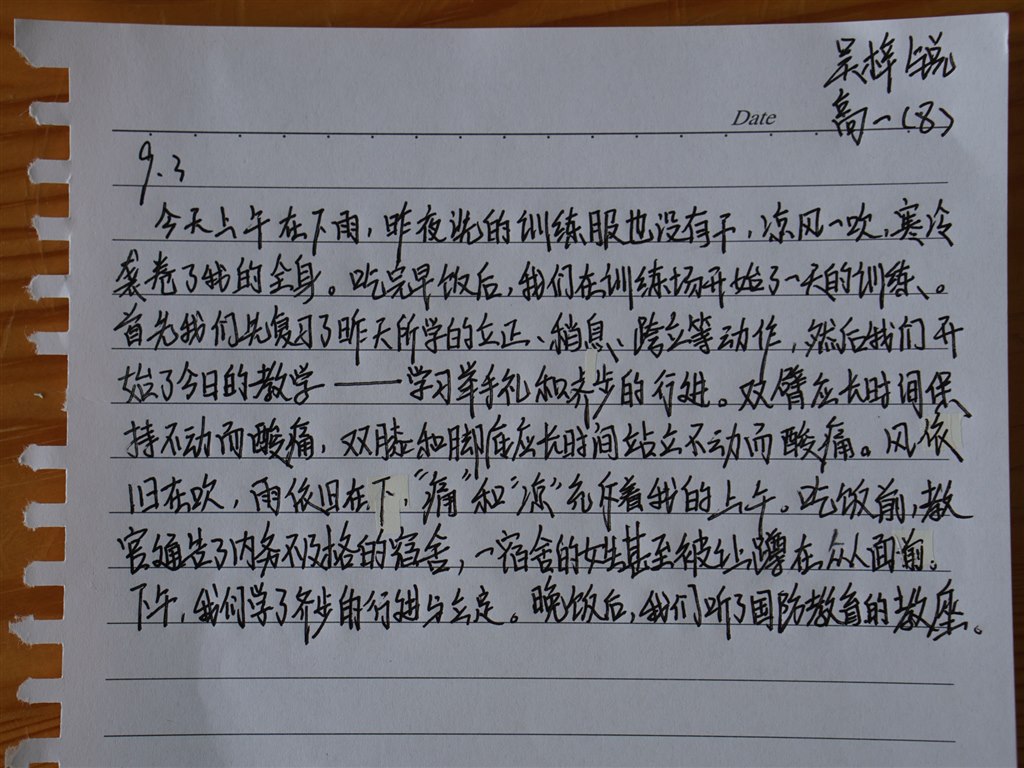 吴梓锐
Date
高一(8)
9.3
今天上午在下雨，昨夜洗的训练服也没有干，凉风一吹，寒冷
袭卷了我的全身。吃完早饭后，我们在训练场开始了一天的训练。
首先我们先复习了昨天所学的立正、稍息、跨立等动作，然后我们开
始了今日的教学——学习举手礼和齐步的行进。双臂应长时间保
持不动而酸痛，双膝和脚底应长时间站立不动而酸痛。风依
旧在吹，雨依旧在下，“痛”和“凉”充斥着我的上午。吃饭前，教
官通告了内务不及格的宿舍，一宿舍的女生甚至被让蹲在众人面前。
下午，我们学了齐步的行进与立定。晚饭后，我们听了国防教育的教座。